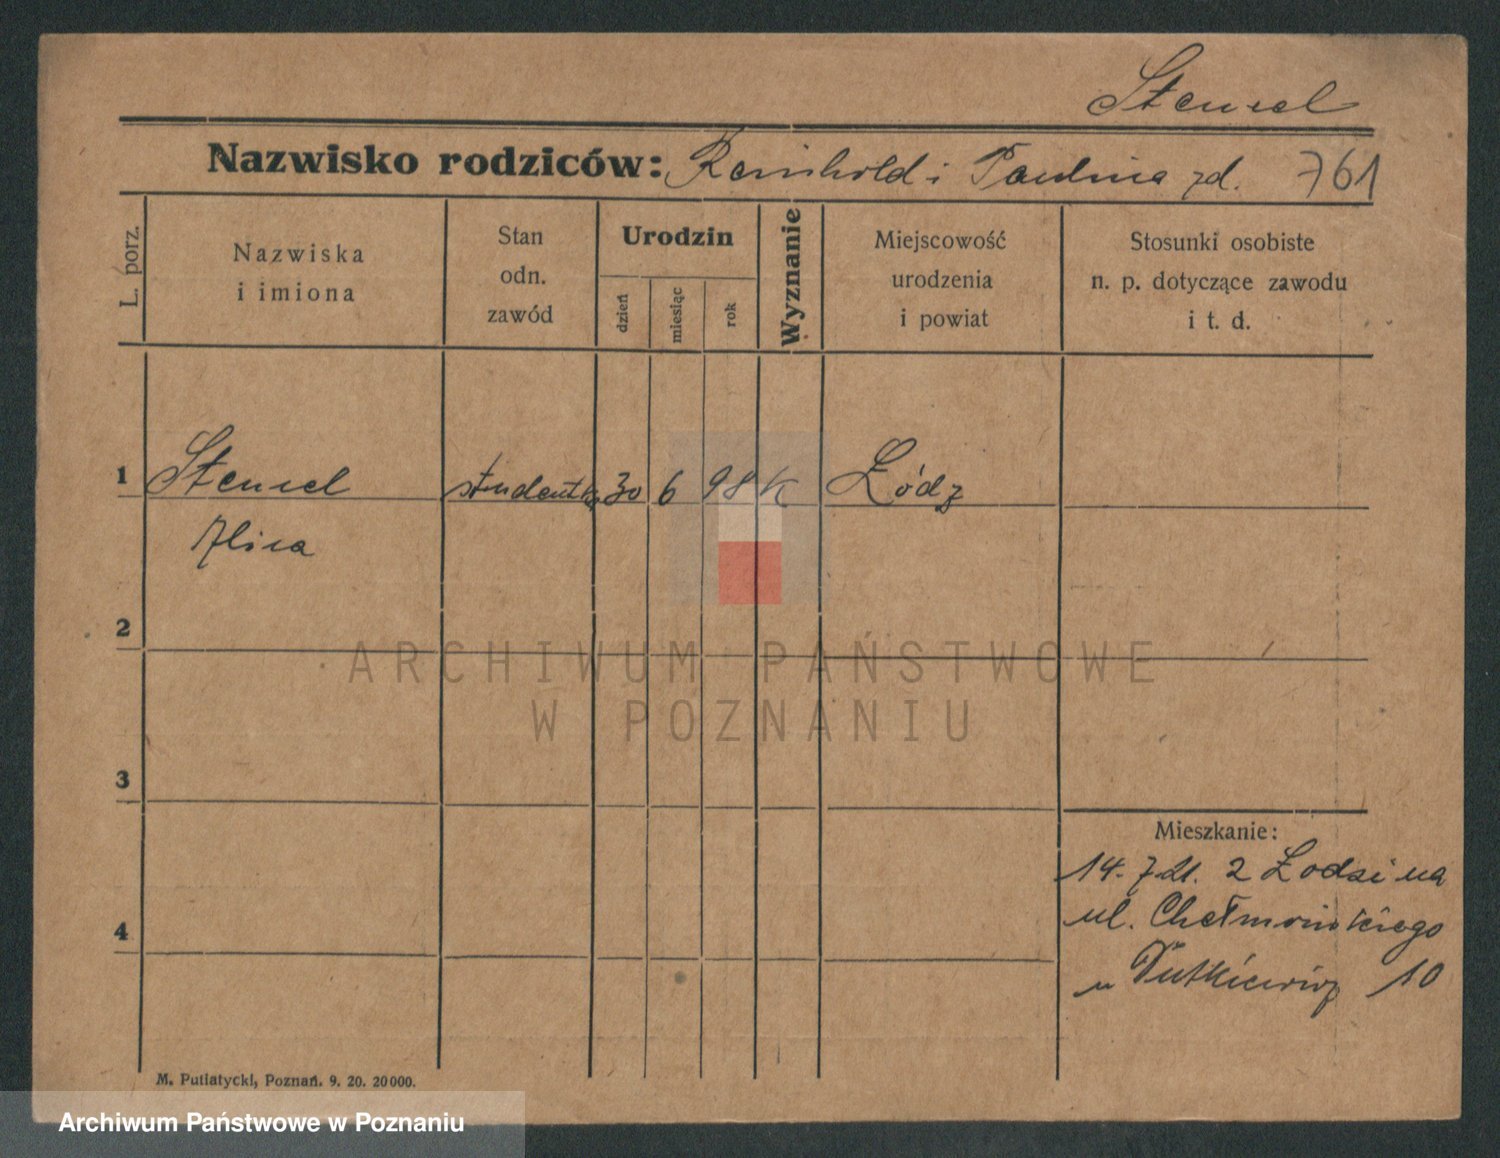 Stencel
Nazwisko rodziców: Reinhold i Paulina zd. 761
L. porz.
Nazwiska
i imiona
Stan
odn.
zawód
Urodzin
dzień
miesiąc
rok
Wyznanie
Miejscowość
urodzenia
i powiat
Stosunki osobiste
n. p. dotyczące zawodu
i t. d.
1 Stencel studentka 30 6 98 K Łódź
Alica
2
ARCHIWUM PAŃSTWOWE
W POZNANIU
3
Mieszkanie:
14. 7. 21. z Łodzi na
ul. Chełmońskiego
4
u 10
M. Putiatycki, Poznań. 9. 20. 20000.
Archiwum Państwowe w Poznaniu